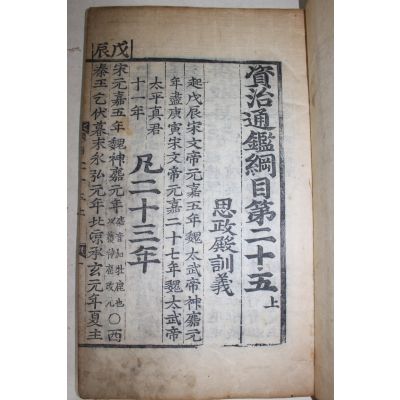 資治通鑑綱目第二十五上
思政殿訓義
起戊辰宋文帝元嘉五年魏太武帝神䴥元
年盡庚寅宋文帝元嘉二十七年魏太武帝
太平真君
十一年
凡二十三年
戊辰
宋元嘉五年魏神䴥元年
音加牝鹿也
○西
秦王乞伏暮末永弘元年北涼承玄元年夏主